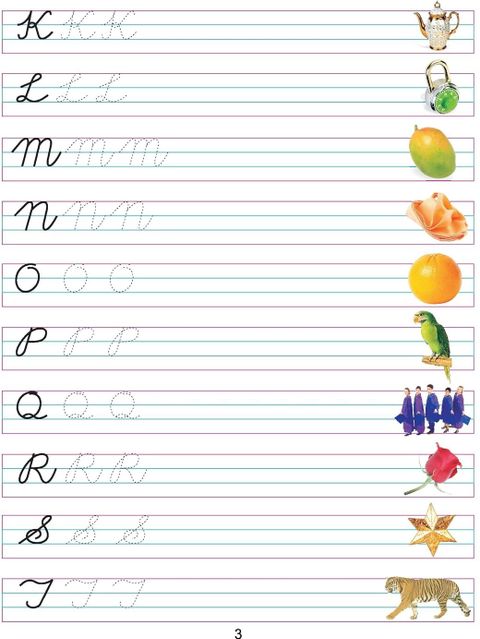 K K K
L L L
M M M
N N N
O O O
P P P
Q Q Q
R R R
S S S
T T T
3